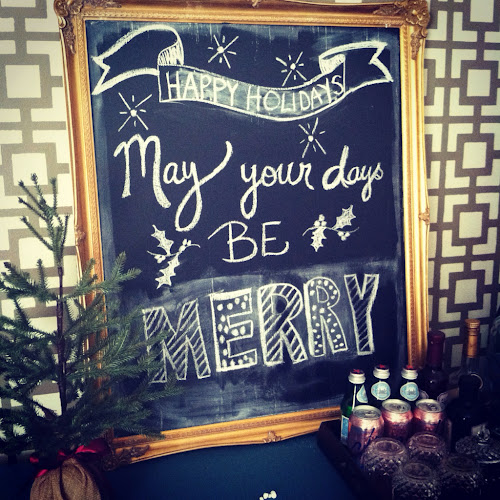 HAPPY HOLIDAYS
May your days
BE
MERRY